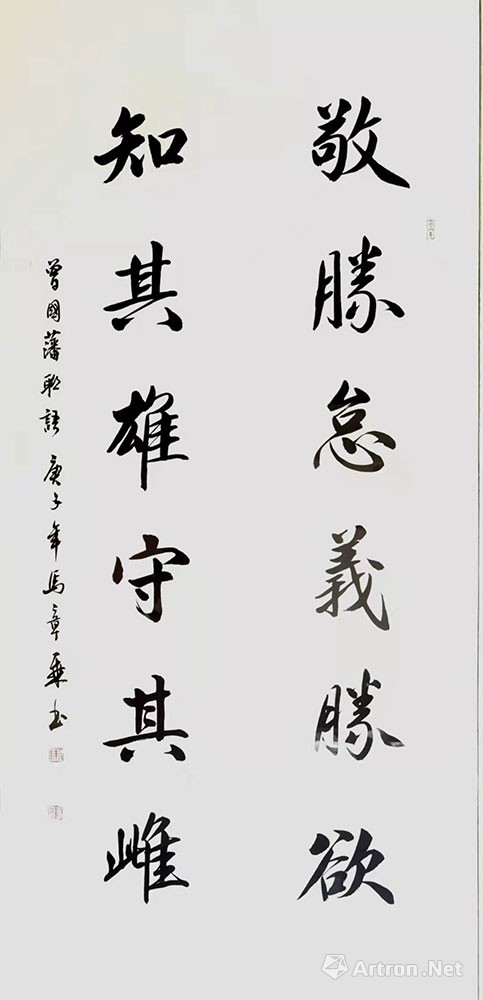 敬勝怠義勝欲
知其雄守其雌
曾國藩聯語 庚子年馬章乘书
Artron.Net